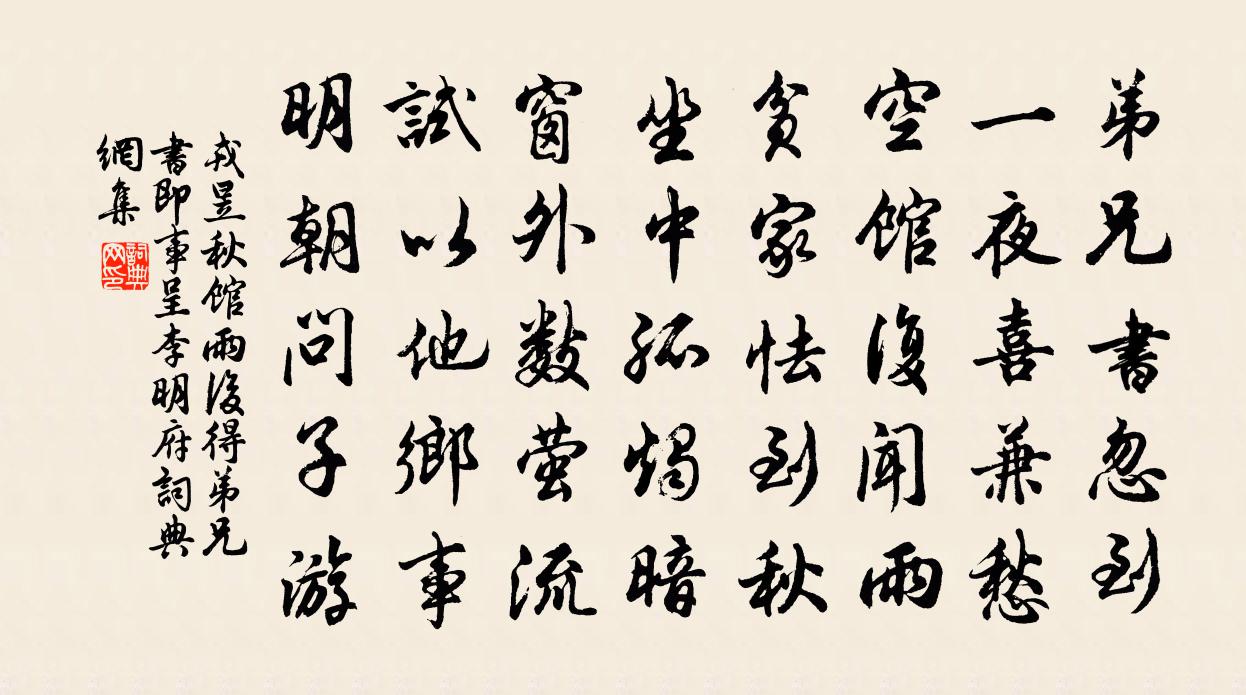 弟兄書忽到
一夜喜兼愁
空館復聞雨
貧家怯到秋
坐中孤燭暗
窗外數螢流
試以他鄉事
明朝問子游
戎昱秋館雨後得弟兄
書即事呈李明府詞典
網集
詞典
网印